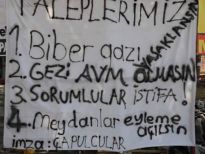 TALEPLERİMİZ
1. Biber gazı YASAKLANSIN
2. GEZİ AVM OLMASIN
3. SORUMLULAR İSTİFA!
4. Meydanlar eyleme açılsın
imza: ÇAPULCULAR